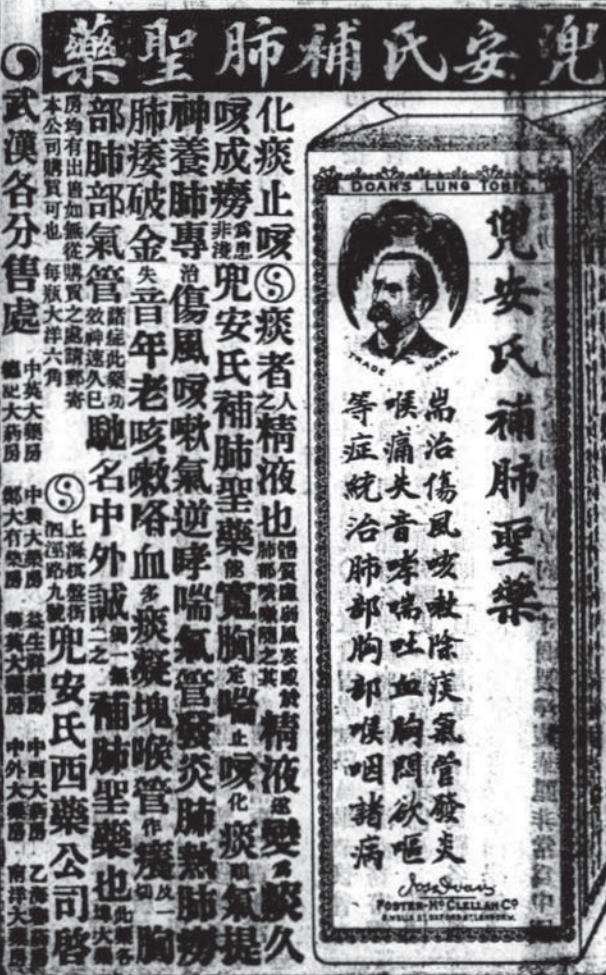 兜安氏補肺聖藥
DOAN'S LUNG TONIC
TRADE MARK
兜安氏補肺聖藥
耑治傷風咳嗽除痰氣管發炎
喉痛失音哮喘吐血胸悶欲嘔
等症統治肺部胸部喉咽諸病
FOSTER-McCLELLAN Co
化痰止咳痰者人之精液也體質虛弱風寒咳於肺部咳嗽隨之其精液遂變爲痰久
咳成癆爲患非淺兜安氏補肺聖藥能寬胸定喘止咳化痰順氣提
神養肺專治傷風咳嗽氣逆哮喘氣管發炎肺熱肺癆
肺痿破金失音年老咳嗽咯血多痰凝塊喉管作癢及一切胸
部肺部氣管諸症此藥功效神速久已馳名中外誠獨一無二之補肺聖藥也此藥各埠大藥
房均有出售如無從購買之處請郵寄
本公司購買可也 每瓶大洋六角
上海棋盤街
泗涇路九號
兜安氏西藥公司啓
武漢各分售處
中英大藥房 中興大藥房 中西大藥房
華英大藥房 中外大藥房 南洋大藥房